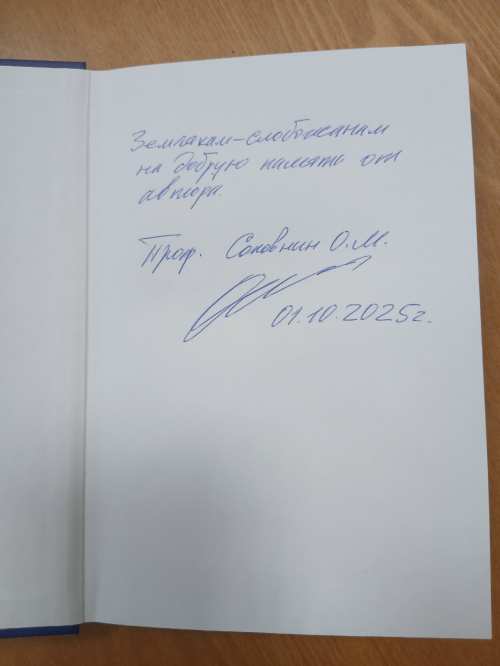 Землякам-слобожанам
на добрую память от
автора.
Проф. Соловнин О.М.
01.10.2025г.